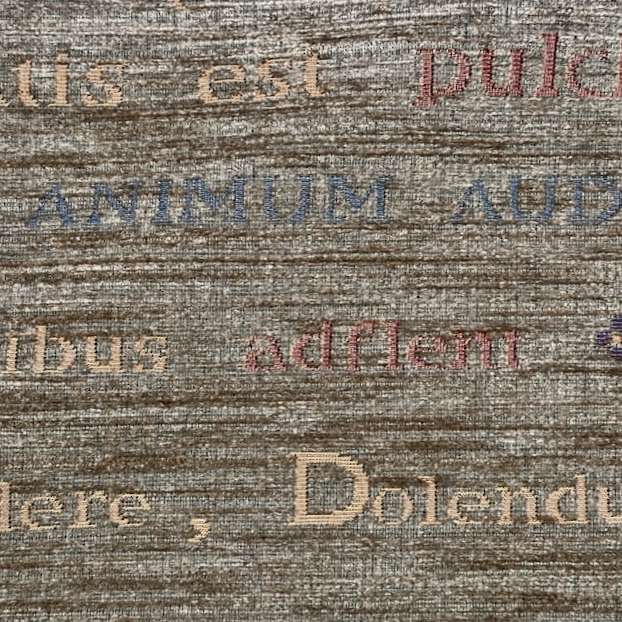 tis est pulc
ANIMUM AUD
ibus adflent
dere, Dolendu